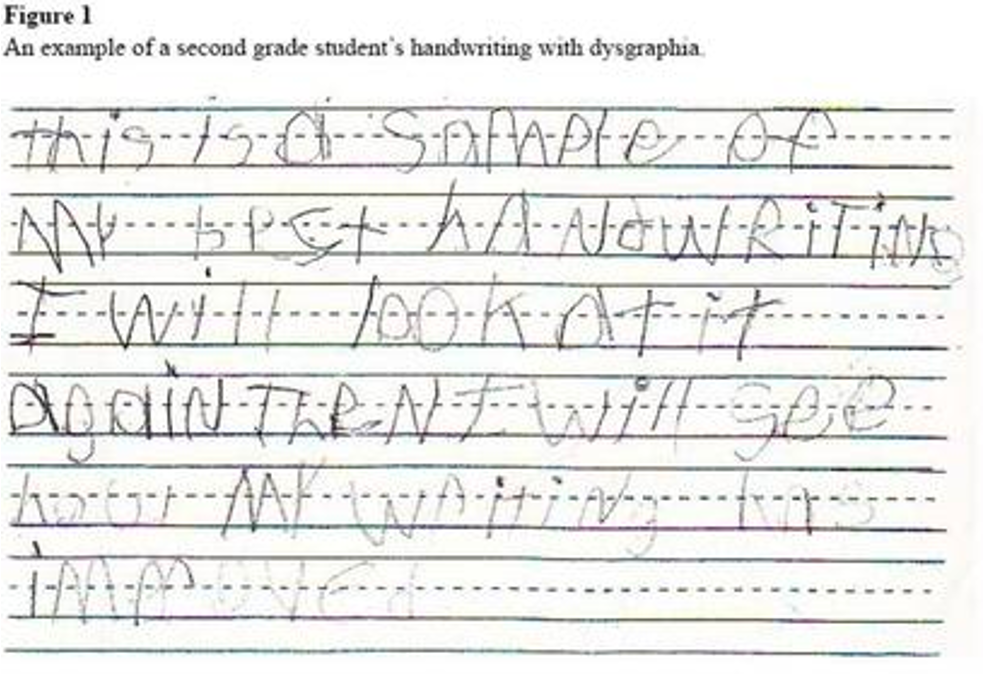 Figure 1
An example of a second grade student's handwriting with dysgraphia.
this is a Sample of
My best hANdwRiTiNg
I will look at it
again TheN I will see
how My writiNg has
imp oved